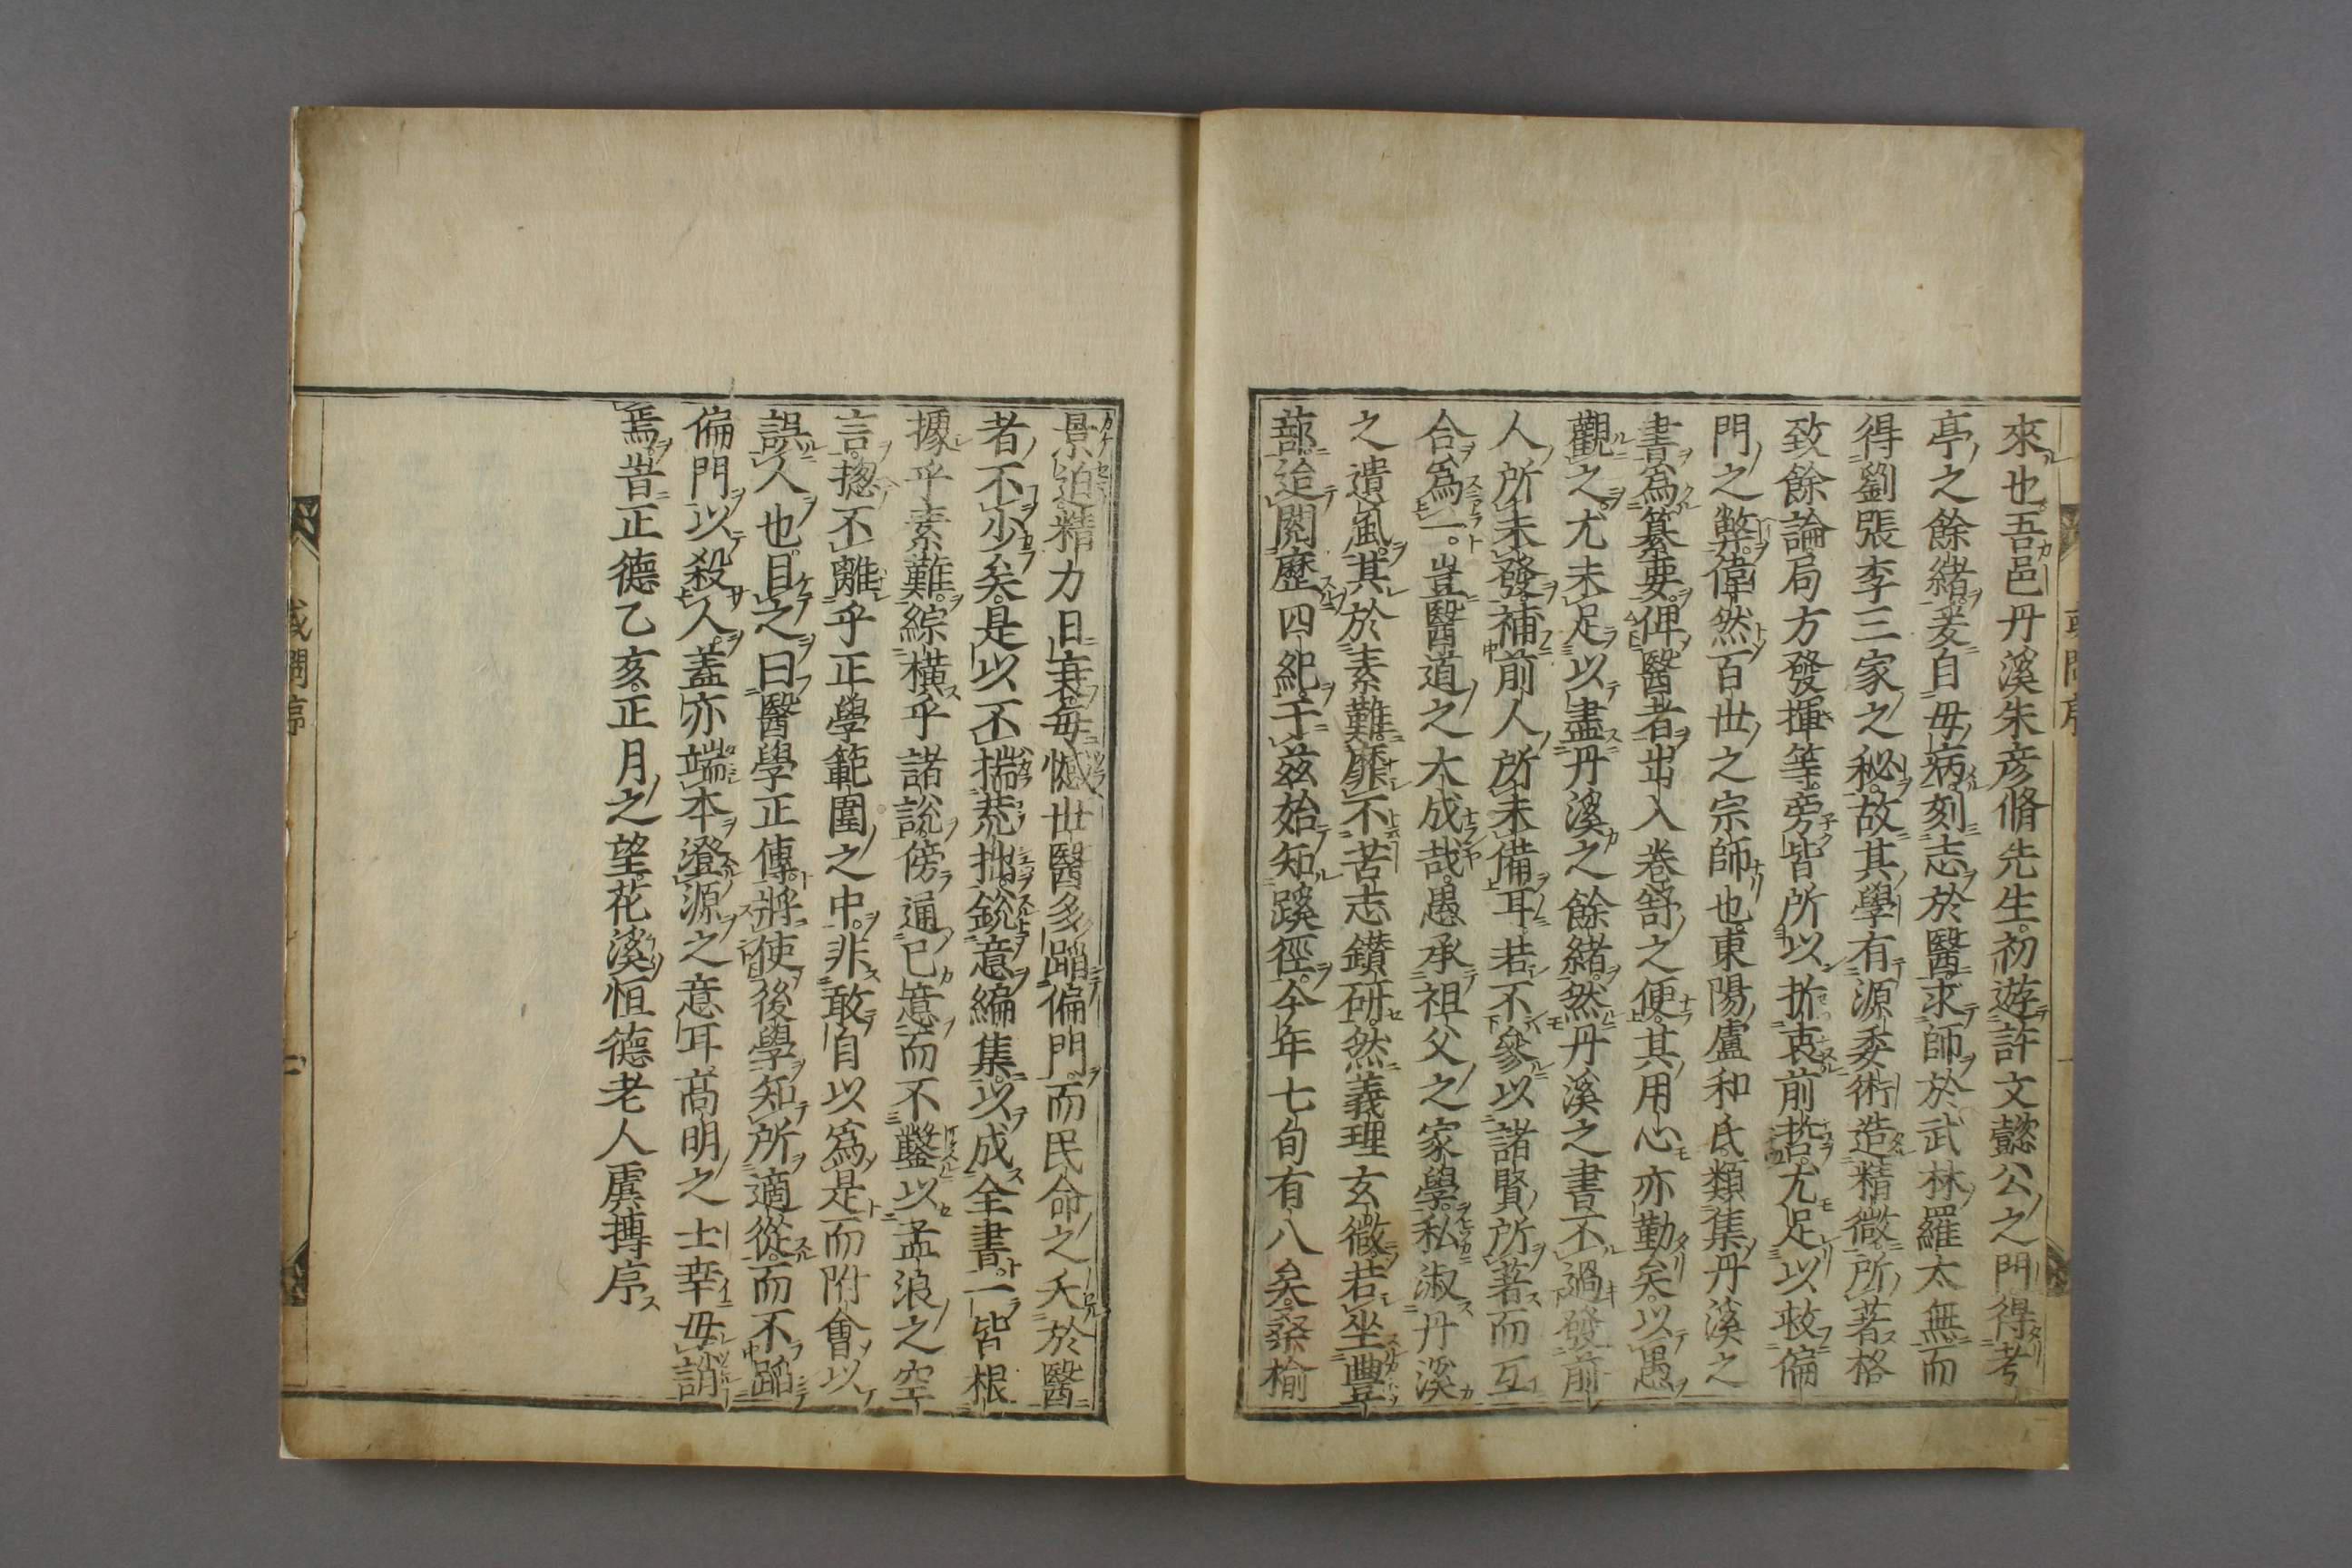 來也吾邑丹溪朱彦脩先生初遊許文懿公之門得考
亭之餘緒爰自母病刻志於醫求師於武林羅太無而
得劉張李三家之秘故其學有源委術造精微所著格
致餘論局方發揮等旁皆所以折衷前哲尤足以救偏
門之弊偉然百世之宗師也東陽盧和氏類集丹溪之
書爲纂要俾醫者出入卷舒之便其用心亦勤矣以愚
觀之尤未足以盡丹溪之餘緒然丹溪之書不過發前
人所未發補前人所未備耳若不參以諸賢所著而互
合爲一豈醫道之大成哉愚承祖父之家學私淑丹溪
之遺風其於素難靡不苦志鑽研然義理玄微若坐豐
蔀迨閱歷四紀于茲始知蹊徑今年七旬有八矣桑榆
景迫精力日衰每憾世醫多蹈偏門而民命之夭於醫
者不少矣是以不揣荒拙銳意編集以成全書一皆根
據乎素難綜橫乎諸說傍通已意而不鑿以孟浪之空
言揔不離乎正學範圍之中非敢自以爲是而附會以
誤人也目之曰醫學正傳將使後學知所適從而不蹈
偏門以殺人蓋亦端本澄源之意耳高明之士幸毋誚
焉昔正德乙亥正月之望花溪恒德老人虞摶序